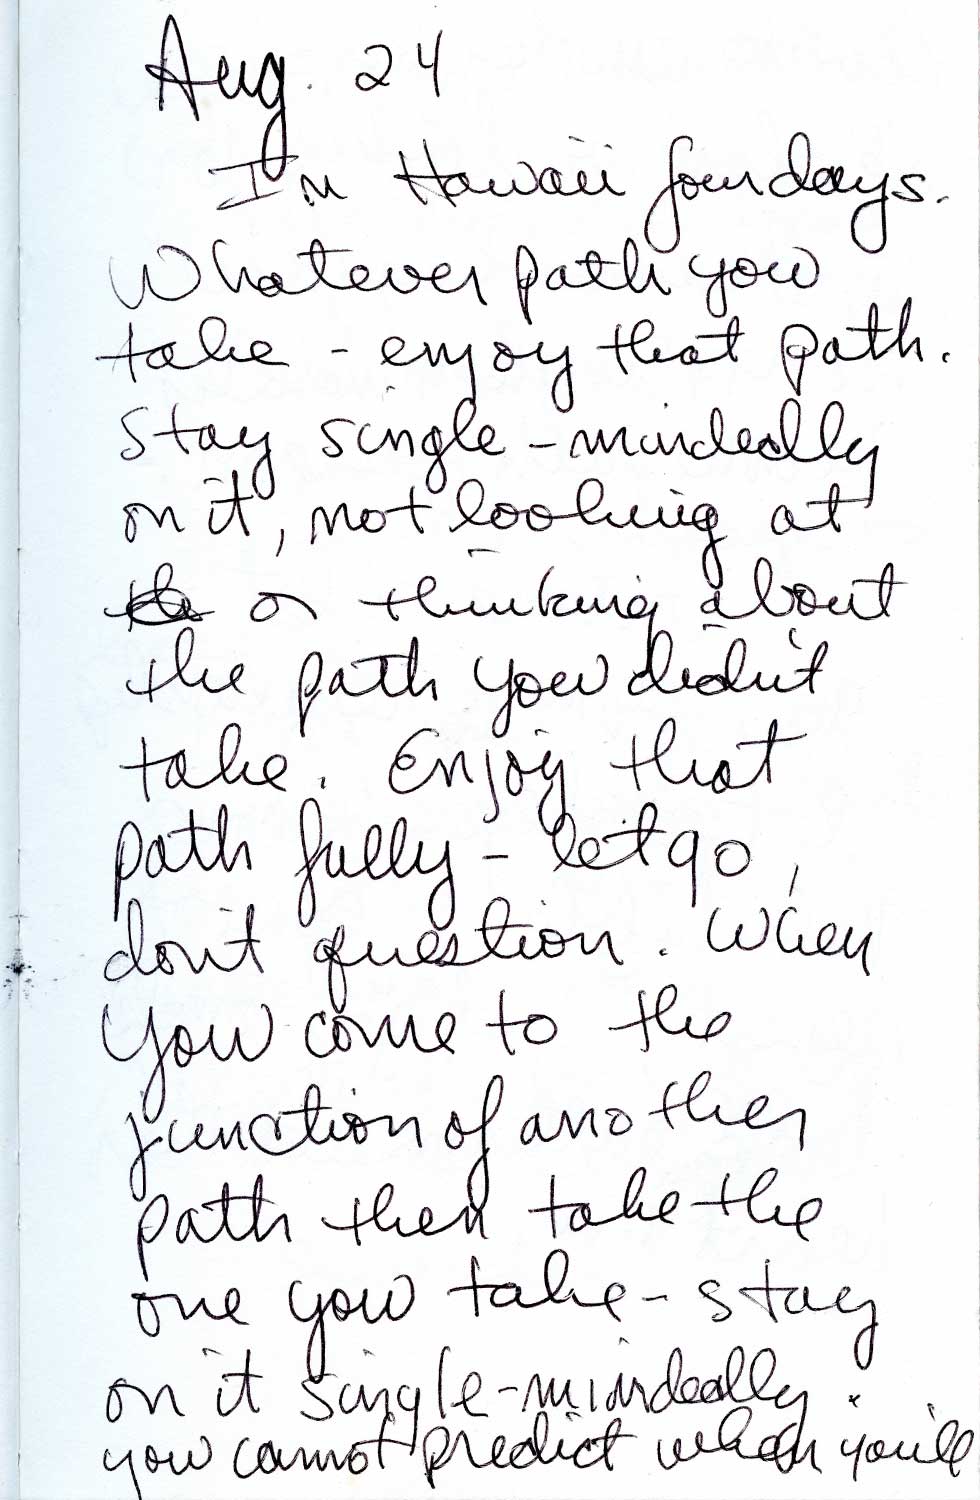 Aug. 24
In Hawaii four days.
Whatever path you
take - enjoy that path.
Stay single-mindedly
on it, not looking at
or thinking about
the path you didn't
take. Enjoy that
path fully - let go,
don't question. When
you come to the
junction of another
path then take the
one you take - stay
on it single-mindedly.
you cannot predict when you'll